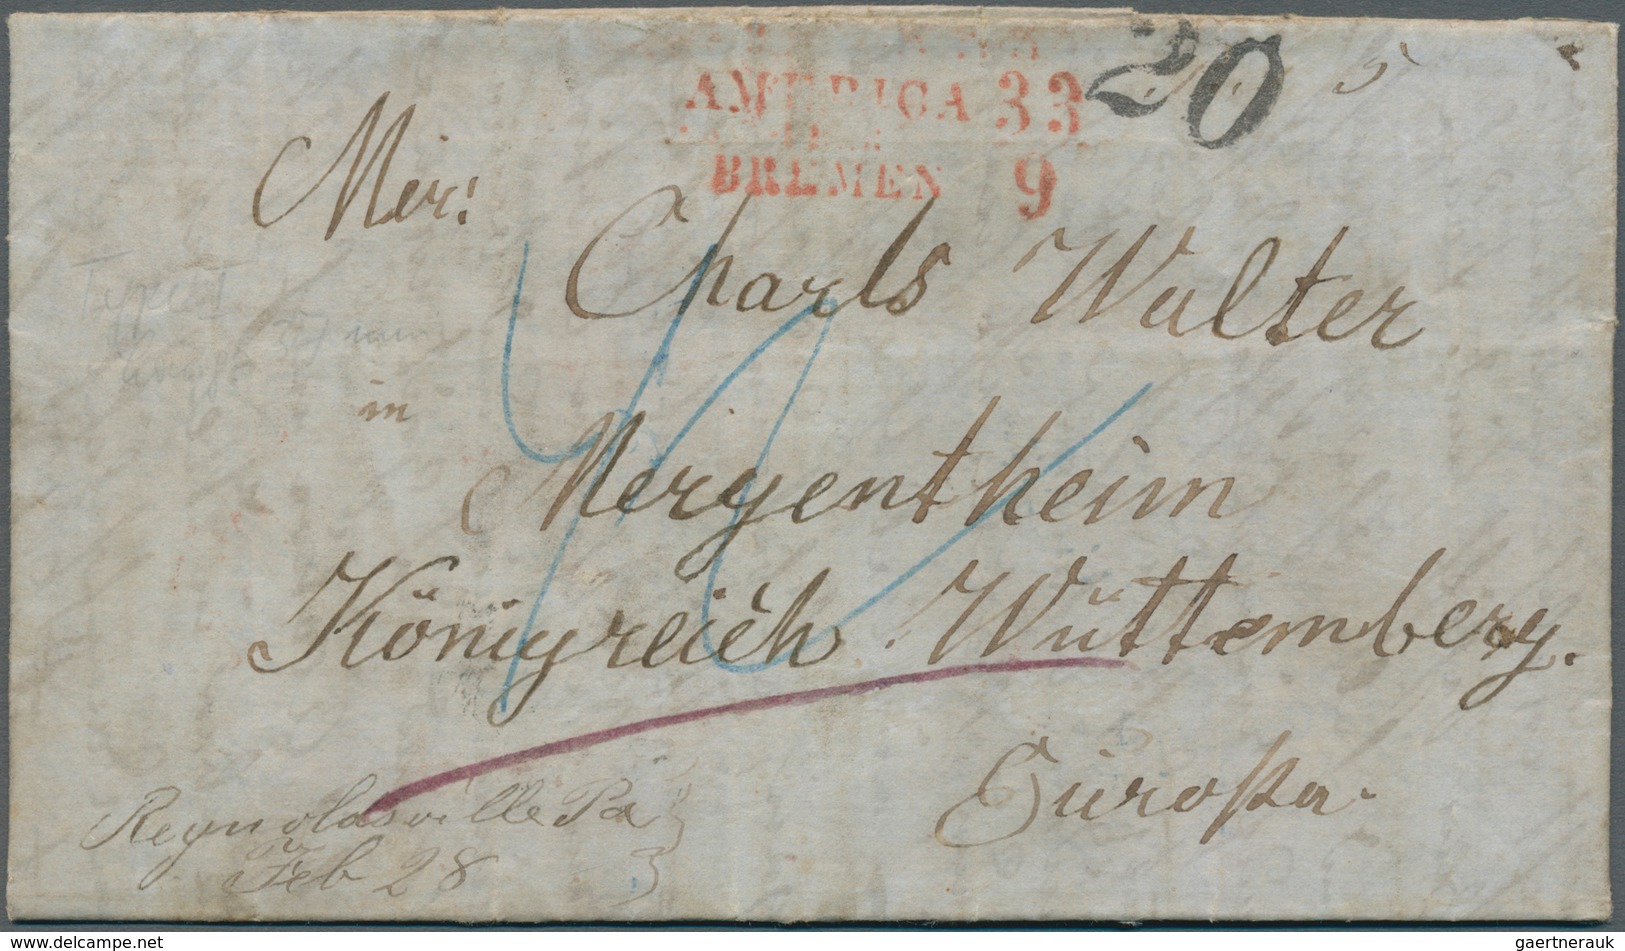 AMERICA 33
BREMEN 9
20
5
Mer:
Charls Walter
in
Mergentheim
Königreich Würtemberg.
Europa.
Reynoldsville Pa
Feb 28
Type I
37 mm
© www.delcampe.net
gaertnerauk